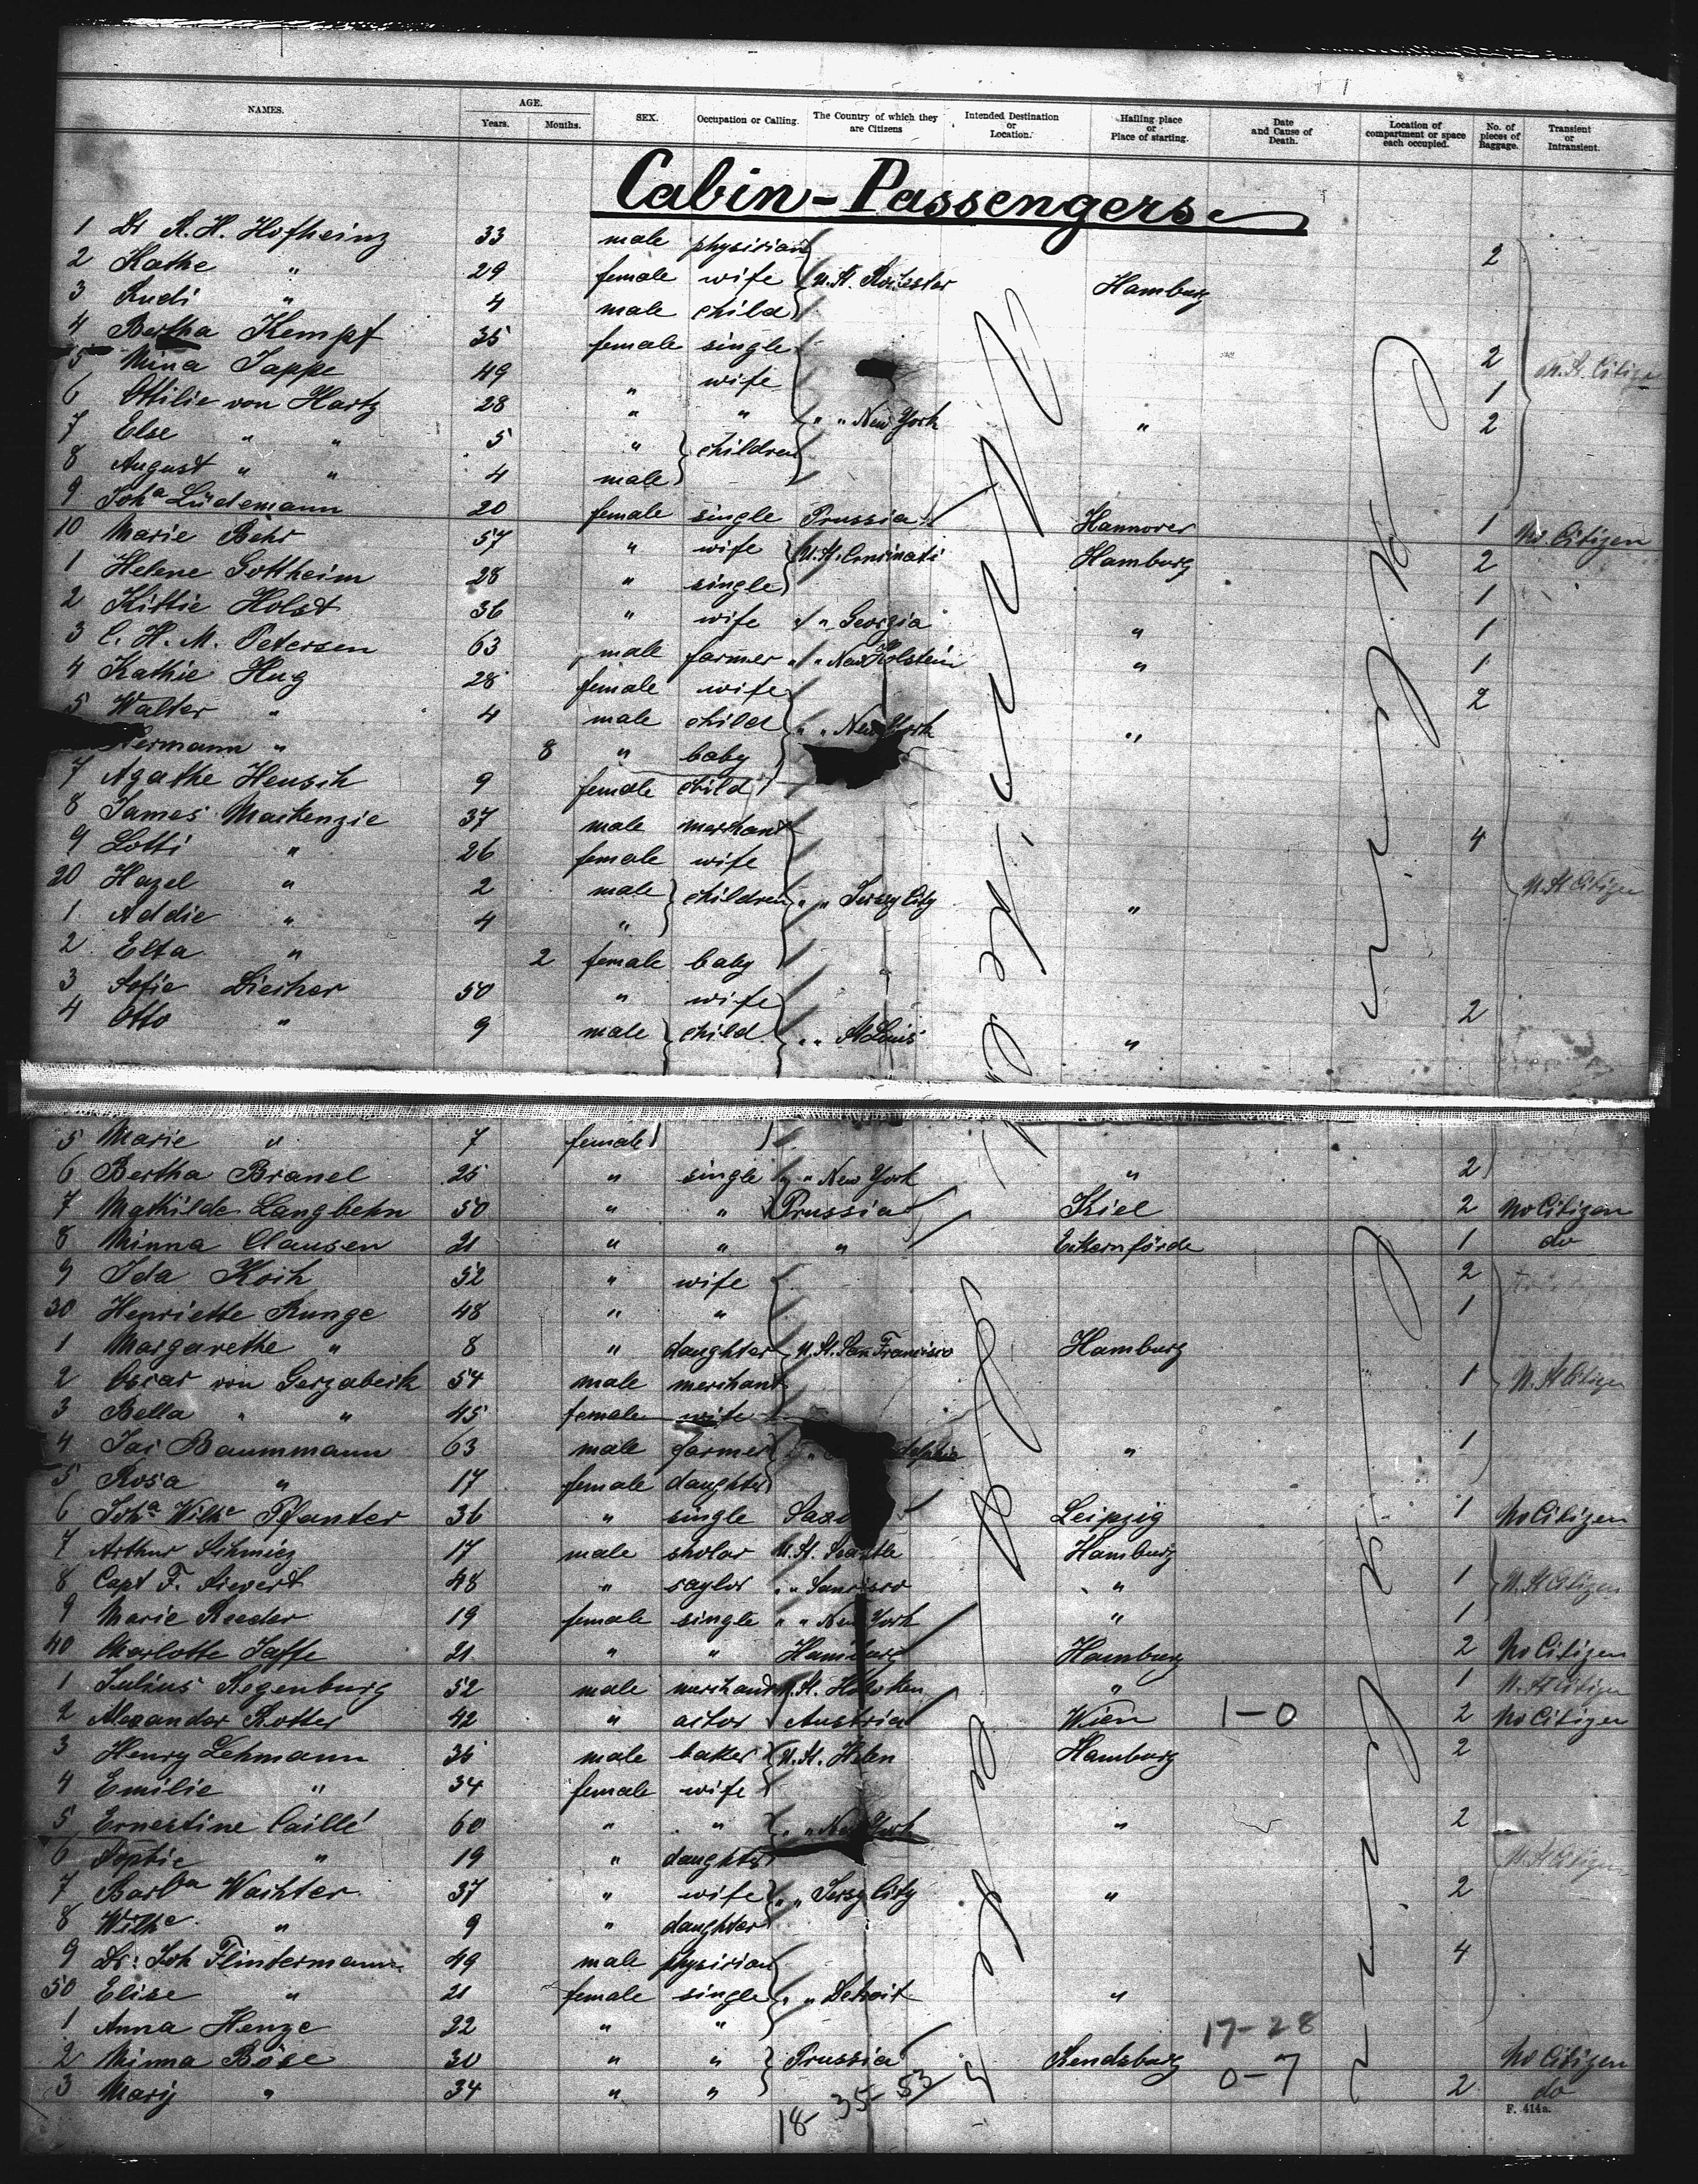 NAMES. AGE. Years. Months. SEX. Occupation or Calling. The Country of which they are Citizens Intended Destination or Location. Hailing place or Place of starting. Date and Cause of Death. Location of compartment or space each occupied. No. of pieces of Baggage. Transient or Intransient.
Cabin-Passengers
1 Dr R. H. Hofheinz 33 male physician 2
2 Kathe " 29 female wife U. St. Rochester Hamburg
3 Rudi " 4 male child
4 Bertha Kempf 35 female single 2
5 Mina Tappe 49 " wife 1 U. St. Citizen
6 Ottilie von Hartz 28 " " " " New York " 2
7 Else " " 5 " children
8 August " " 4 male
9 Joha Lüdemann 20 female single Prussia Hannover 1 No Citizen
10 Marie Behr 57 " wife U. St. Cincinnati Hamburg 2
1 Helene Gottheim 28 " single 1
2 Kittie Holst 36 " wife " " Georgia " 1
3 C. H. M. Petersen 63 male farmer " " New Holstein " 1
4 Kathie Hug 28 female wife 2
5 Walter " 4 male child " " New York "
Hermann " 8 " baby
7 Agathe Heusch 9 female child
8 James Mackenzie 37 male merchant 4
9 Lotti " 26 female wife
20 Hazel " 2 male children " " Jersey City " U. St. Citizen
1 Addie " 4 "
2 Elta " 2 female baby
3 Sofie Diecher 50 " wife 2
4 Otto " 9 male child " " St Louis "
5 Marie " 7 female
6 Bertha Branel 25 " single " " New York " 2
7 Mathilde Langbehn 50 " " Prussia Kiel 2 No Citizen
8 Minna Clausen 21 " " " Eckernförde 1 do
9 Ida Koch 52 " wife 2
30 Henriette Runge 48 " " 1
1 Margarethe " 8 " daughter U. St. San Francisco Hamburg
2 Oscar von Gerzabeck 54 male merchant 1 U. St. Citizen
3 Bella " " 45 female wife
4 Jac Baummann 63 male farmer delphia " 1
5 Rosa " 17 female daughter
6 Joha Wilhe Pfanter 36 " single Leipzig 1 No Citizen
7 Arthur Schmiez 17 male scholar U. St. Seattle Hamburg
8 Capt F. Sievert 48 " saylor " " " 1 U. St Citizen
9 Marie Reeder 19 female single " " New York " 1
40 Charlotte Jaffe 21 " " Hamburg Hamburg 2 No Citizen
1 Julius Regenburg 52 male merchant U. St. Hoboken " 1 U. St Citizen
2 Alexander Rotter 42 " actor Austria Wien 1-0 2 No Citizen
3 Henry Lehmann 36 male baker U. St. Helen Hamburg 2
4 Emilie " 34 female wife
5 Ernestine Caillé 60 " " " " New York " 2
6 Sophie " 19 " daughter U. St Citizen
7 Barbra Wachter 37 " wife " " Jersy City " 2
8 Wilhe " 9 " daughter
9 Dr. Joh Flintermann 49 male physician 4
50 Elise " 21 female single " " Detroit "
1 Anna Henze 22 " " 17-28
2 Minna Böse 30 " " Prussia Rendsburg 0-7 No Citizen
3 Mary " 34 " " 2 do
18- 35- 53
F. 414a.